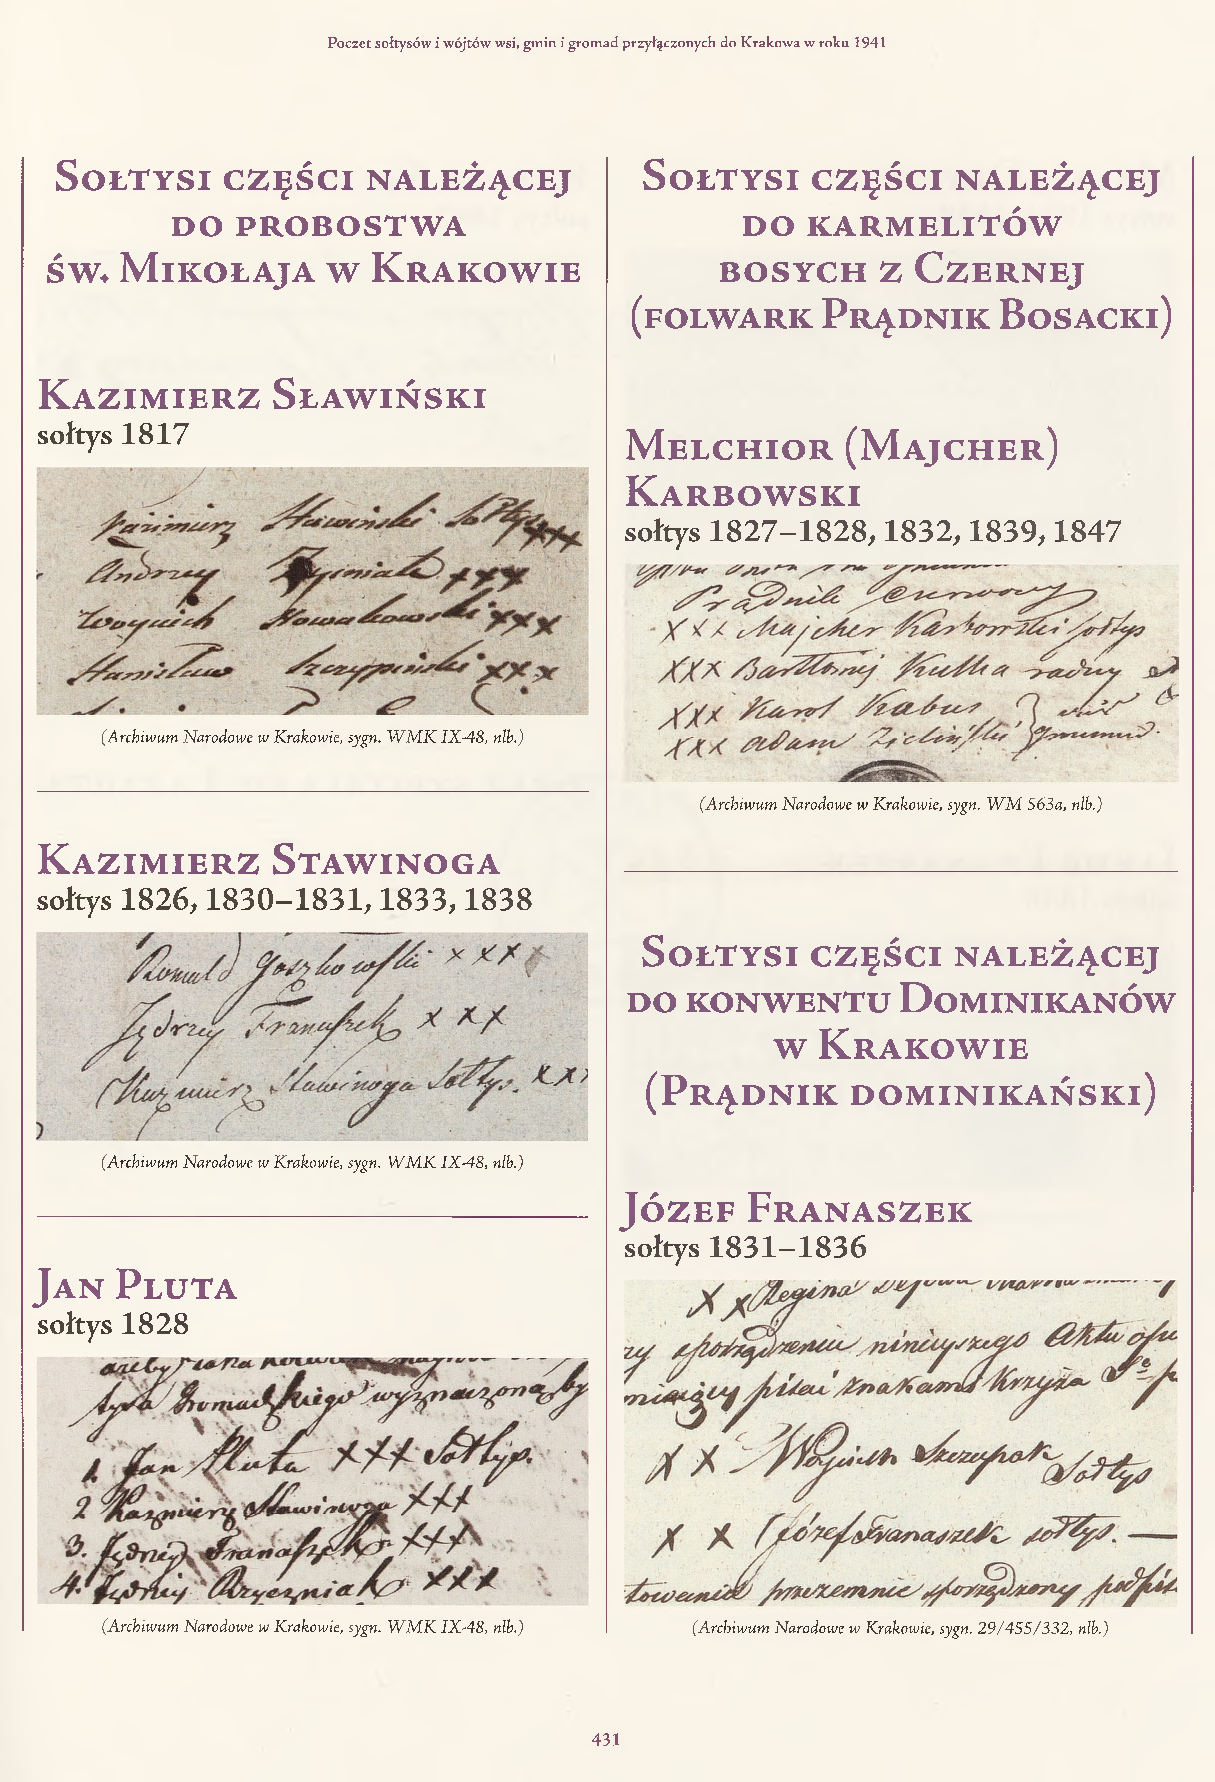 Poczet sołtysów i wójtów wsi, gmin i gromad przyłączonych do Krakowa w roku 1941
Sołtysi części należącej
do probostwa
św. Mikołaja w Krakowie
Kazimierz Sławiński
sołtys 1817
Kazimierz Sławinski Sołtys xxx
Andrzey xxx
Woyciech Nowakowski xxx
Stanisław xxx
(Archiwum Narodowe w Krakowie, sygn. WMK IX-48, nlb.)
Kazimierz Stawinoga
sołtys 1826, 1830–1831, 1833, 1838
Romuld Goszkowski xxx
Jędrzey Franaszek x x x
Kazmierz Stawinoga Sołtys. x x x
(Archiwum Narodowe w Krakowie, sygn. WMK IX-48, nlb.)
Jan Pluta
sołtys 1828
Gromadzkiego wyznaczoną by
1. Jan Pluta xxx Sołtys.
2 Kazmierz Stawinoga xxx
3. Jędrzej Franaszek xxx
4. Jędrzej xxx
(Archiwum Narodowe w Krakowie, sygn. WMK IX-48, nlb.)
Sołtysi części należącej
do karmelitów
bosych z Czernej
(folwark Prądnik Bosacki)
Melchior (Majcher)
Karbowski
sołtys 1827–1828, 1832, 1839, 1847
Prądnik Czerwony
xxx Majcher Karbowski sołtys
xxx Bartłomiej Kulka radny
xxx Karol Kabus
xxx Adam Zieliński
(Archiwum Narodowe w Krakowie, sygn. WM 563a, nlb.)
Sołtysi części należącej
do konwentu Dominikanów
w Krakowie
(Prądnik dominikański)
Józef Franaszek
sołtys 1831–1836
x x Regina
sporządzeniu ninieyszego Aktu
pisai znakami Krzyża
x x Wojciech Szczupak Sołtys
x x Józef Franaszek sołtys. —
przezemnie sporządzony
(Archiwum Narodowe w Krakowie, sygn. 29/455/332, nlb.)
431